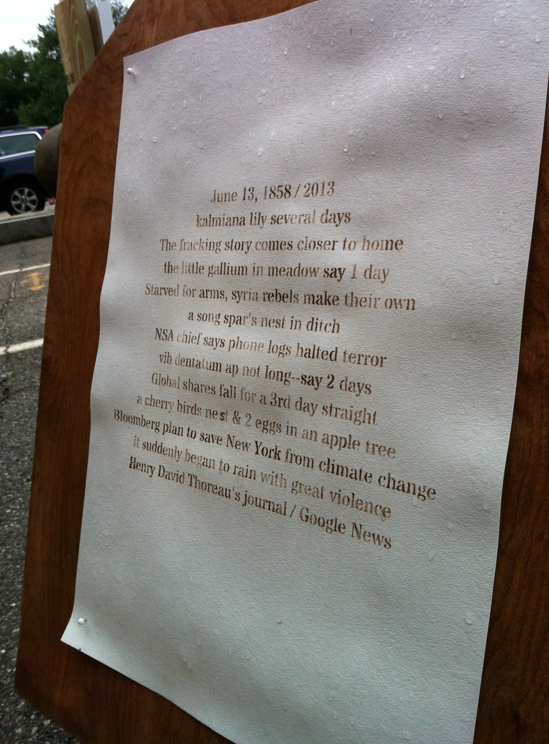 June 13, 1858 / 2013
kalmiana lily several days
The fracking story comes closer to home
the little gallium in meadow say 1 day
Starved for arms, syria rebels make their own
a song spar's nest in ditch
NSA chief says phone logs halted terror
vib dentatum ap not long--say 2 days
Global shares fall for a 3rd day straight
a cherry birds nest & 2 eggs in an apple tree
Bloomberg plan to save New York from climate change
it suddenly began to rain with great violence
Henry David Thoreau's journal / Google News